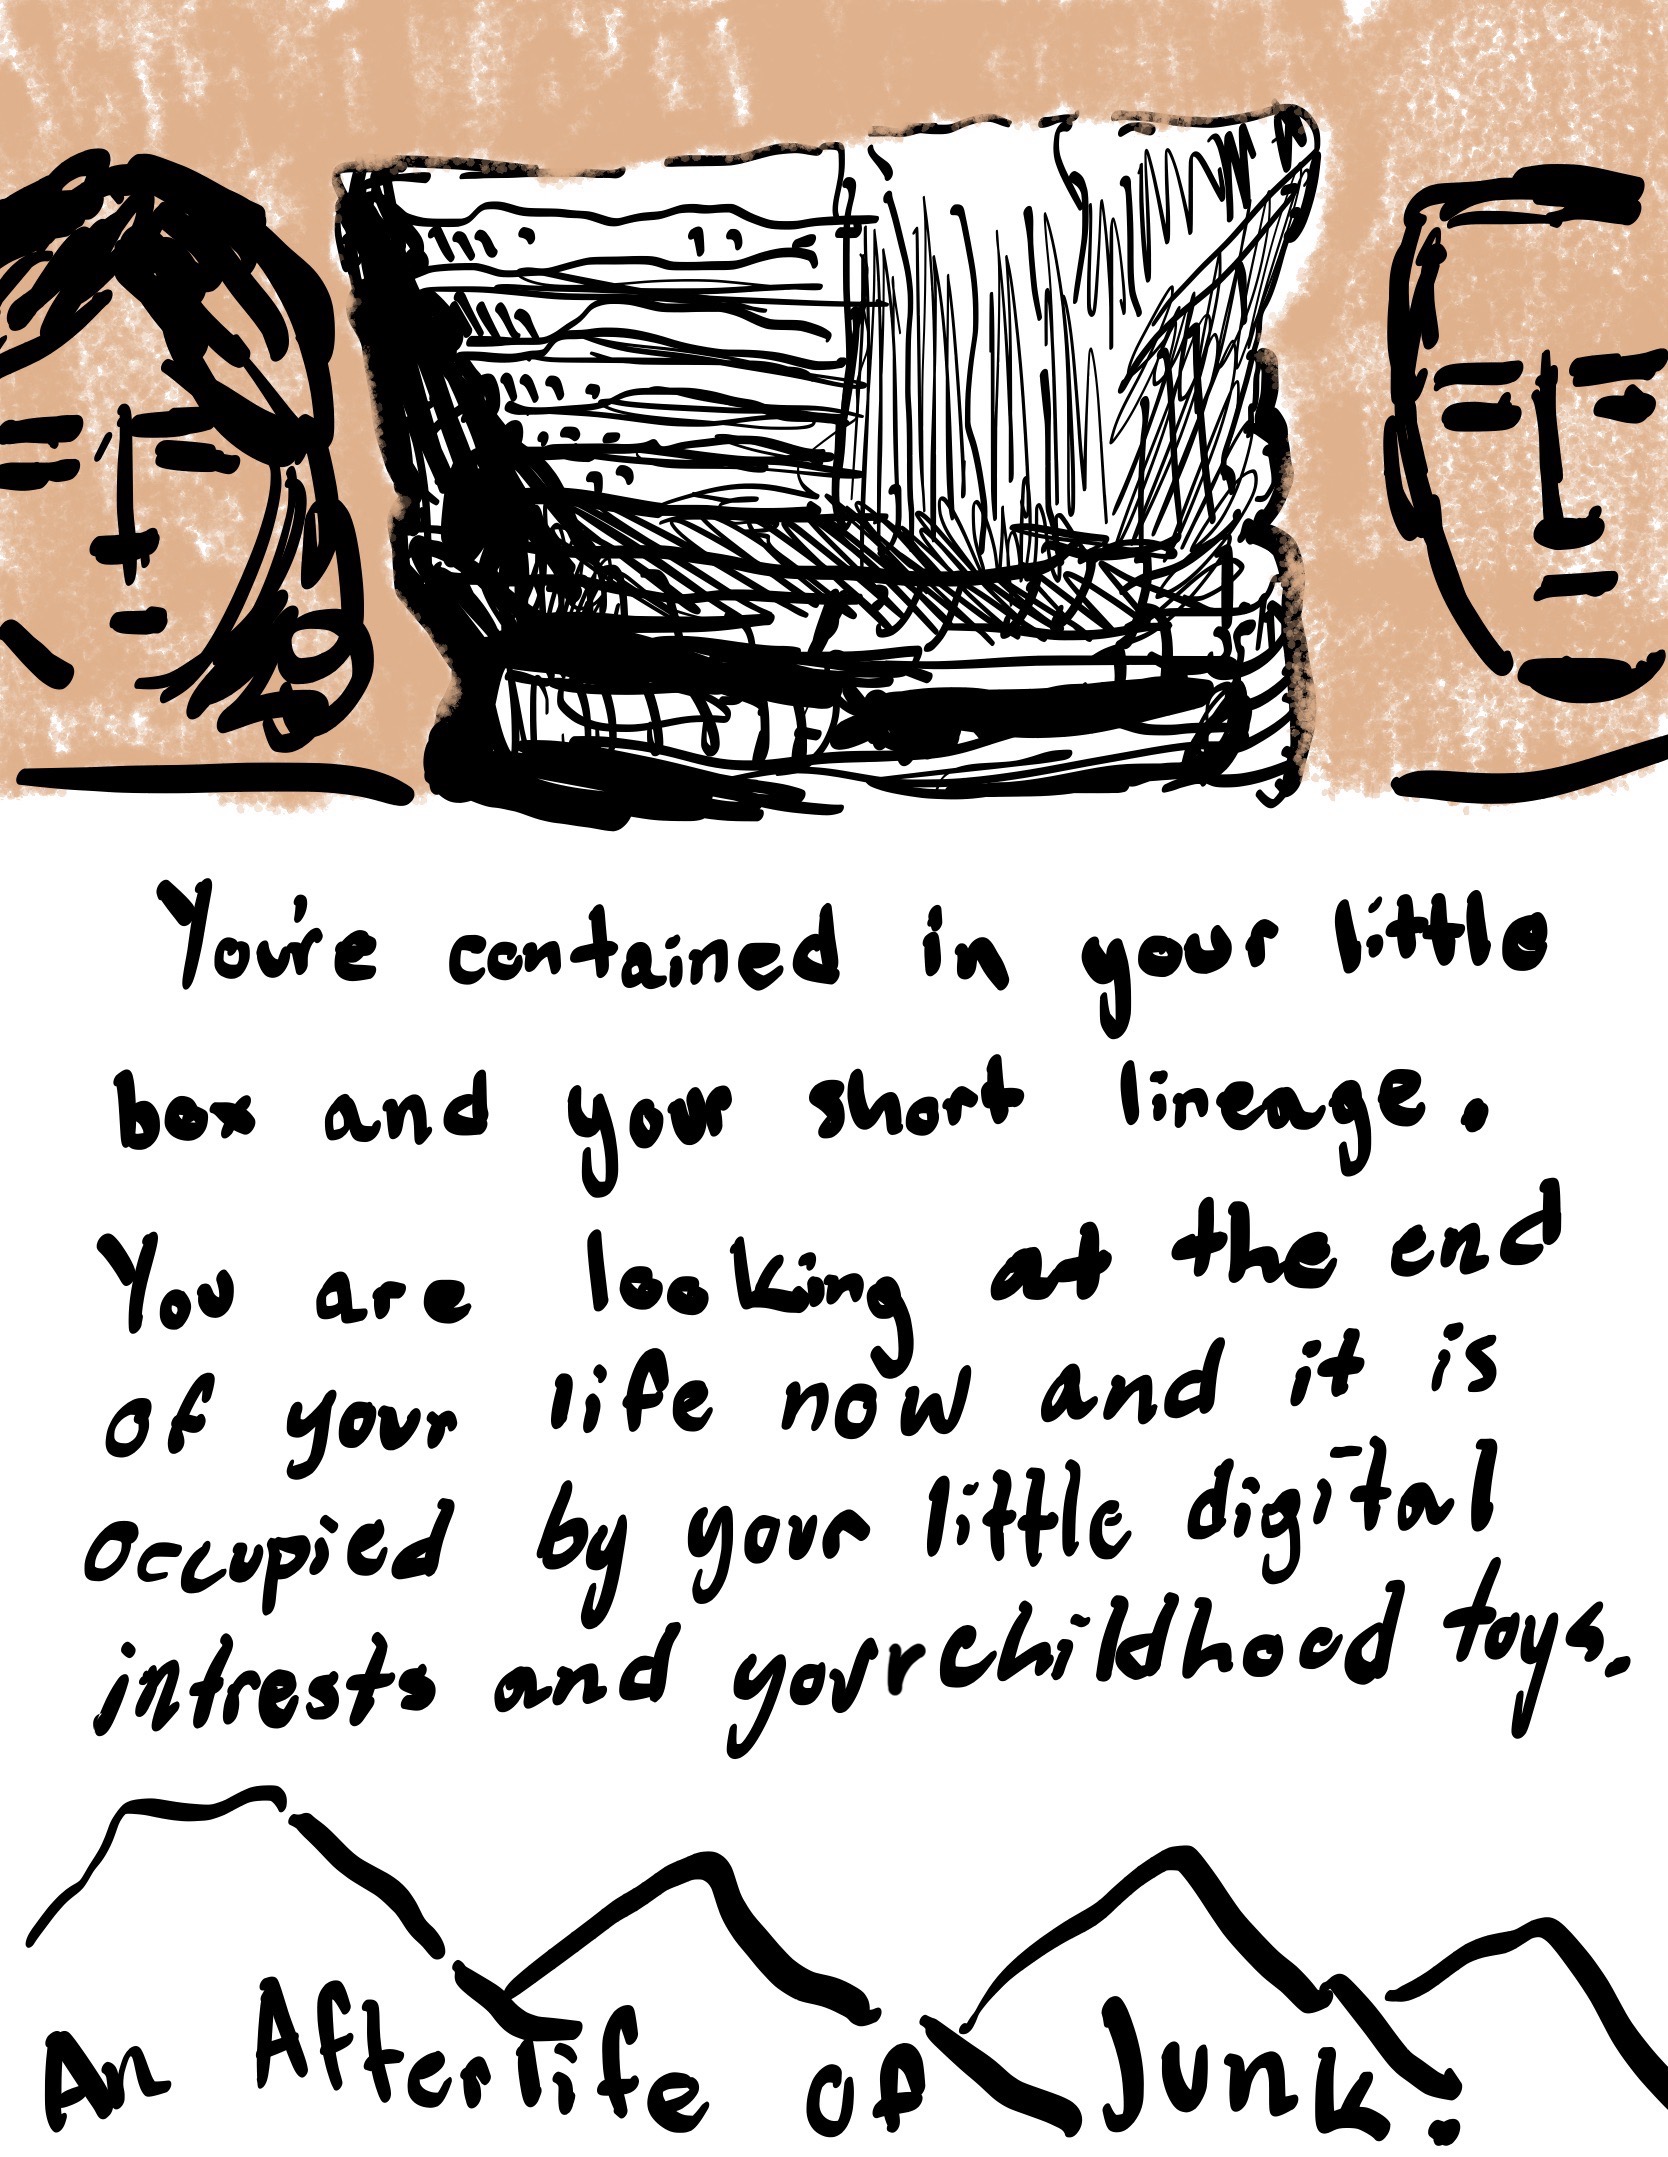 You're contained in your little
box and your short lineage.
You are looking at the end
of your life now and it is
occupied by your little digital
intrests and your childhood toys.
An Afterlife of Junk.